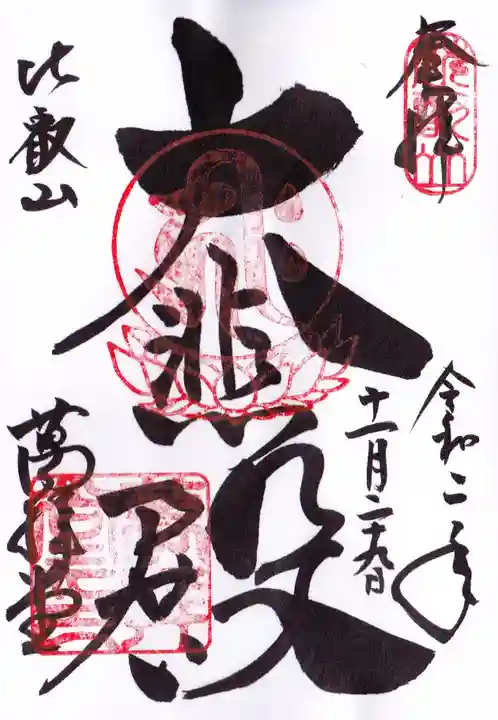 奉拝
令和二年
十一月二十九日
大悲殿
比叡山
萬拝堂